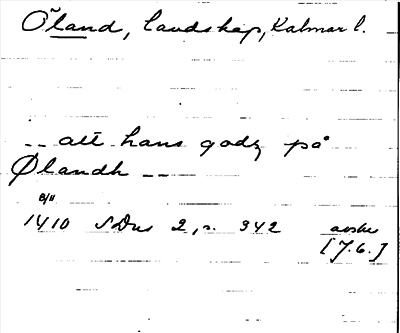 Öland, landskap, Kalmar l.
-- all hans godz på
Ølandh --
8/11
1410 SDns 2, s. 342 avskr
[J.G.]